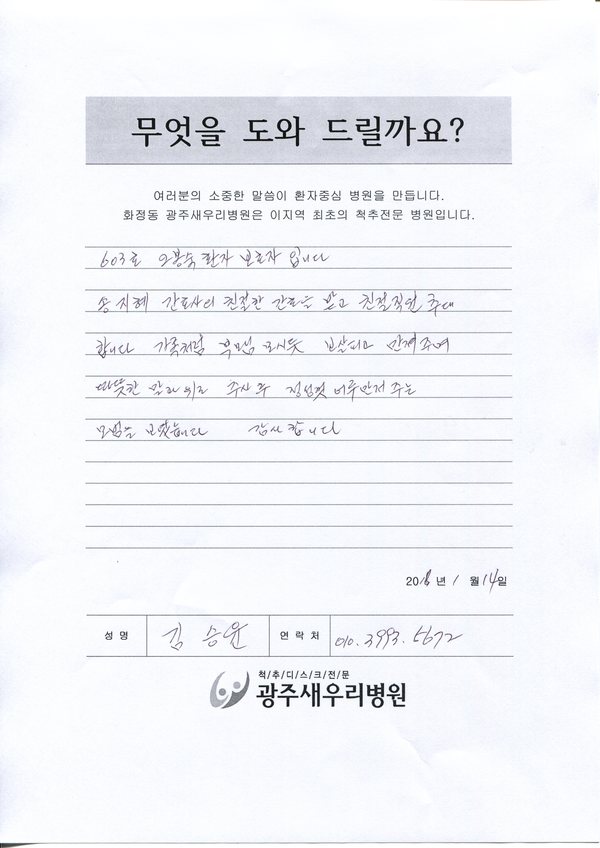 무엇을 도와 드릴까요?
여러분의 소중한 말씀이 환자중심 병원을 만듭니다.
화정동 광주새우리병원은 이지역 최초의 척추전문 병원입니다.
603호 환자 보호자 입니다
송지혜 간호사의 친절한 간호를 받고 친절직원 추대
합니다 가족처럼 부모님 모시듯 보살피고 만져주며
따뜻한 말과 위로 주사 후 정성껏 어루만져 주는
모범을 보였습니다 감사합니다
2018년 1월 14일
성명 김승윤 연락처 010.3993.5672
척/추/디/스/크/전/문
광주새우리병원